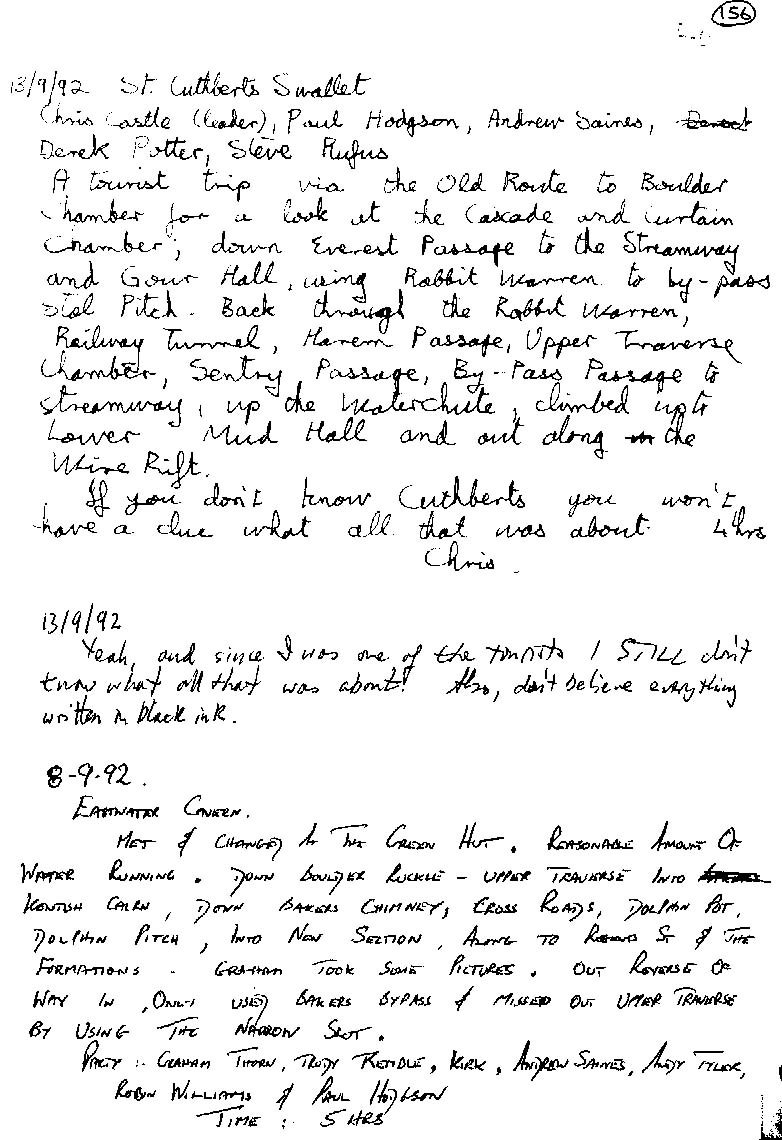 156
13/9/92 St. Cuthberts Swallet
Chris Castle (leader), Paul Hodgson, Andrew Saines,
Derek Potter, Steve Rufus
A tourist trip via the Old Route to Boulder
Chamber for a look at the Cascade and Curtain
Chamber; down Everest Passage to the Streamway
and Gour Hall, using Rabbit Warren to by-pass
Stal Pitch. Back through the Rabbit Warren,
Railway Tunnel, Harem Passage, Upper Traverse
Chamber, Sentry Passage, By-Pass Passage to
streamway, up the Waterchute, climbed up to
Lower Mud Hall and out along the
Wire Rift.
If you don't know Cuthberts you won't
have a clue what all that was about. 4hrs
Chris.
13/9/92
Yeah, and since I was one of the tourists I STILL don't
know what all that was about! Also, don't believe everything
written in black ink.
8-9-92.
EASTWATER CAVERN.
MET & CHANGED IN THE GREEN HUT. REASONABLE AMOUNT OF
WATER RUNNING. DOWN BOULDER RUCKLE - UPPER TRAVERSE INTO
KENTISH CAIRN, DOWN BAKERS CHIMNEY, CROSS ROADS, DOLPHIN POT,
DOLPHIN PITCH, INTO NEW SECTION, ALONG TO REGENT ST & THE
FORMATIONS. GRAHAM TOOK SOME PICTURES. OUT REVERSE OF
WAY IN, ONLY USED BAKERS BYPASS & MISSED OUT UPPER TRAVERSE
BY USING THE NARROW SLOT.
PARTY :- GRAHAM THORN, TRUDY KEMBLE, KIRK, ANDREW SAINES, ANDY TYLER,
ROBIN WILLIAMS & PAUL HODGSON
TIME : 5 HRS